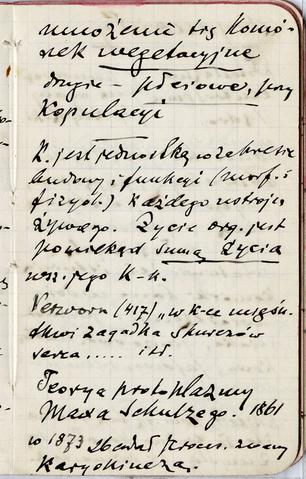 mnożenie się komó-
rek wegetacyjne
drugie – płciowe, przy
Kopulacyi
K. jest jednostką w zakresie
budowy i funkcyi (morf. i
fizyol.) każdego ustroju
żywego. Życie org. jest
poniekąd sumą życia
wsz. jego K-k.
Verworn (417) „w k-ce mięśn.
tkwi zagadka skurczów
serca..... itd.
Teorya protoplazmy
Maxa Schulzego. 1861
w 1873 zbadał proces. zwany
Karyokinezą.